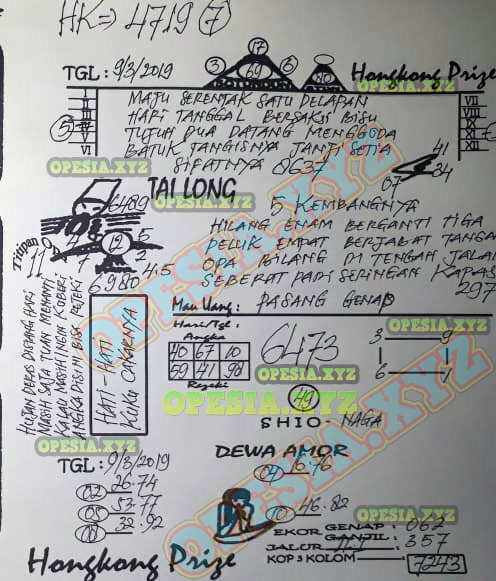 HK=> 4719 (7)
17
3 69 6
TGL : 9/3/2019
80
Hongkong Prize
OPESIA.XYZ
I
VI
VII
XII
5
MAJU SERENTAK SATU DELAPAN
HARI TANGGAL BERSAKSI BISU
TUJUH DUA DATANG MENGGODA
BATUK TANGISNYA JANJI SETIA
SIFATNYA 8637
41
34
07
OPESIA.XYZ
OPESIA.XYZ
TAI LONG
OPESIA.XYZ
6489
5 KEMBANGNYA
HILANG ENAM BERGANTI TIGA
PELUK EMPAT BERJABAT TANGAN
OPA BILANG DI TENGAH JALAN
SEBERAT PADI SERINGAN KAPAS
297
Titipan
11
12
5
2
4.5
6980
Mau Uang : PASANG GENAP
Hari/Tgl :
Angka
40 67 10
59 41 98
Rejeki
6473
3 9
6 1
OPESIA.XYZ
OPESIA.XYZ
OPESIA.XYZ
49
SHIO - NAGA
HUJAN DERAS DIPAGI HARI
MASIH SAJA TUAN MENANTI
KALAU MASIH INGIN KOBERI
ANGKA DISINI BISA REJEKI
HATI - HATI
KUKU CAKARNYA
OPESIA.XYZ
OPE-SIA.XYZ
TGL : 9/3/2019
02 26.74
05 53.77
08 32.92
DEWA AMOR
04 16.76
10 46.82
OPESIA.XYZ
OPESIA.XYZ
EKOR GENAP : 062
GANJIL : 357
JALUR
KOP 3 KOLOM : 7243
Hongkong Prize